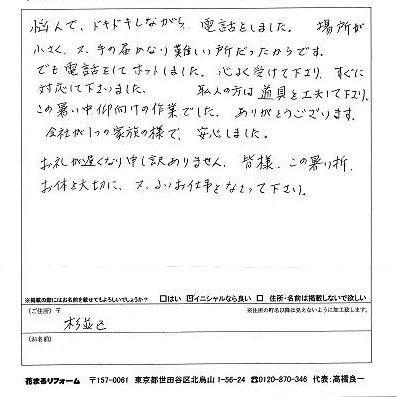 悩んで、ドキドキしながら 電話をしました。 場所が
小さく、又、手の届かない難しい所だったからです。
でも電話をしてホッとしました。心よく受けて下さり、すぐに
対応して下さいました。 職人の方は道具を工夫して下さり、
この暑い中仰向けの作業でした。ありがとうございます。
会社が1つの家族の様で、安心しました。
お礼が遅くなり申し訳ありません。皆様、この暑い折、
お体を大切に、又、よいお仕事をなさって下さい。
※掲載の際にはお名前を載せてもよろしいでしょうか? □はい ☑イニシャルなら良い □ 住所・名前は掲載しないで欲しい
(ご住所) 〒 ※住所の町名以降は見えないように加工致します。
杉並区
(お名前)
花まるリフォーム 〒157-0061 東京都世田谷区北烏山1-56-24 ☎0120-870-346 代表:高橋良一